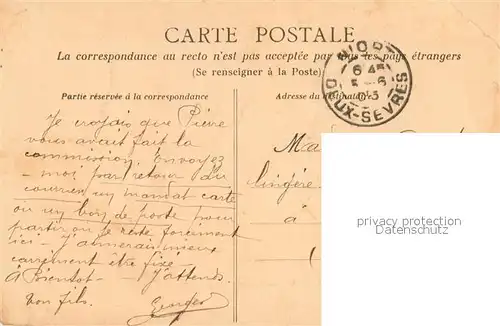 CARTE POSTALE
La correspondance au recto n'est pas acceptée par tous les pays étrangers
(Se renseigner à la Poste)
Partie réservée à la correspondance
Adresse du destinataire
NIORT
6 45
5 -6
05
DEUX-SÈVRES
Je croyais que Pierre
vous avait fait la
commission. Envoyez
-moi par retour du
courrier un mandat carte
ou un bon de poste pour
partir ou je reste forcément
ici - J'aimerais mieux
carrément être fixé -
à Bientôt - J'attends.
ton fils. Georges
Ma
lingère
à
privacy protection
www.oldthing.de